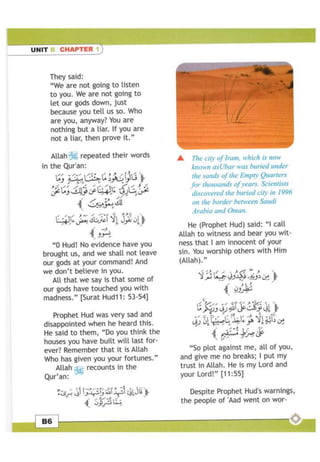 UNIT B CHAPTER 1
They said:
"We are not going to listen
to you. We are not going to
let our gods down, just
because you tell us so. Who
are you, anyway? You are
nothing but a liar. If you are
not a liar, then prove it."
Allah ﷻ repeated their words
in the Qur'an:
"O Hud! No evidence have you
brought us, and we shall not leave
our gods at your command! And
we don't believe in you.
All that we say is that some of
our gods have touched you with
madness." [Surat Hud11: 53-54]
Prophet Hud was very sad and
disappointed when he heard this.
He said to them, "Do you think the
houses you have built will last for-
ever? Remember that it is Allah
Who has given you your fortunes."
Allah ﷻ recounts in the
Qur'an:
The city of Iram, which is now
known asUbar was buried under
the sands of the Empty Quarters
for thousands of years. Scientists
discovered the buried city in 1996
on the border between Saudi
Arabia and Oman.
He (Prophet Hud) said: "I call
Allah to witness and bear you wit-
ness that I am innocent of your
sin. You worship others with Him
(Allah)."
"So plot against me, all of you,
and give me no breaks; I put my
trust in Allah. He is my Lord and
your Lord!" [11:55]
Despite Prophet Hud's warnings,
the people of 'Aad went on wor-
B6